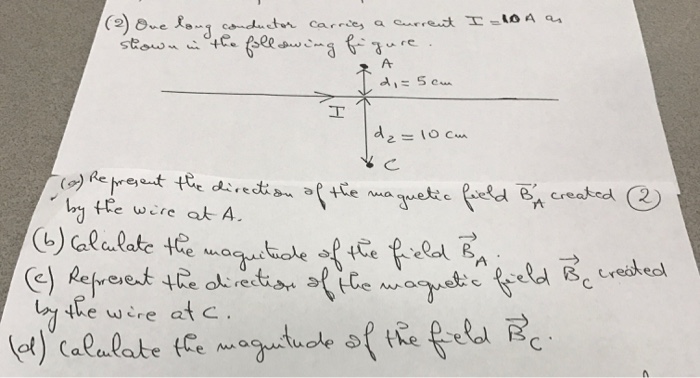 (2) One long conductor carries a current I = 10 A as
shown in the following figure.
A
d₁ = 5 cm
I
d₂ = 10 cm
C
(a) Represent the direction of the magnetic field B⃗_A created (2)
by the wire at A.
(b) Calculate the magnitude of the field B⃗_A.
(c) Represent the direction of the magnetic field B⃗_C created
by the wire at C.
(d) Calculate the magnitude of the field B⃗_C.